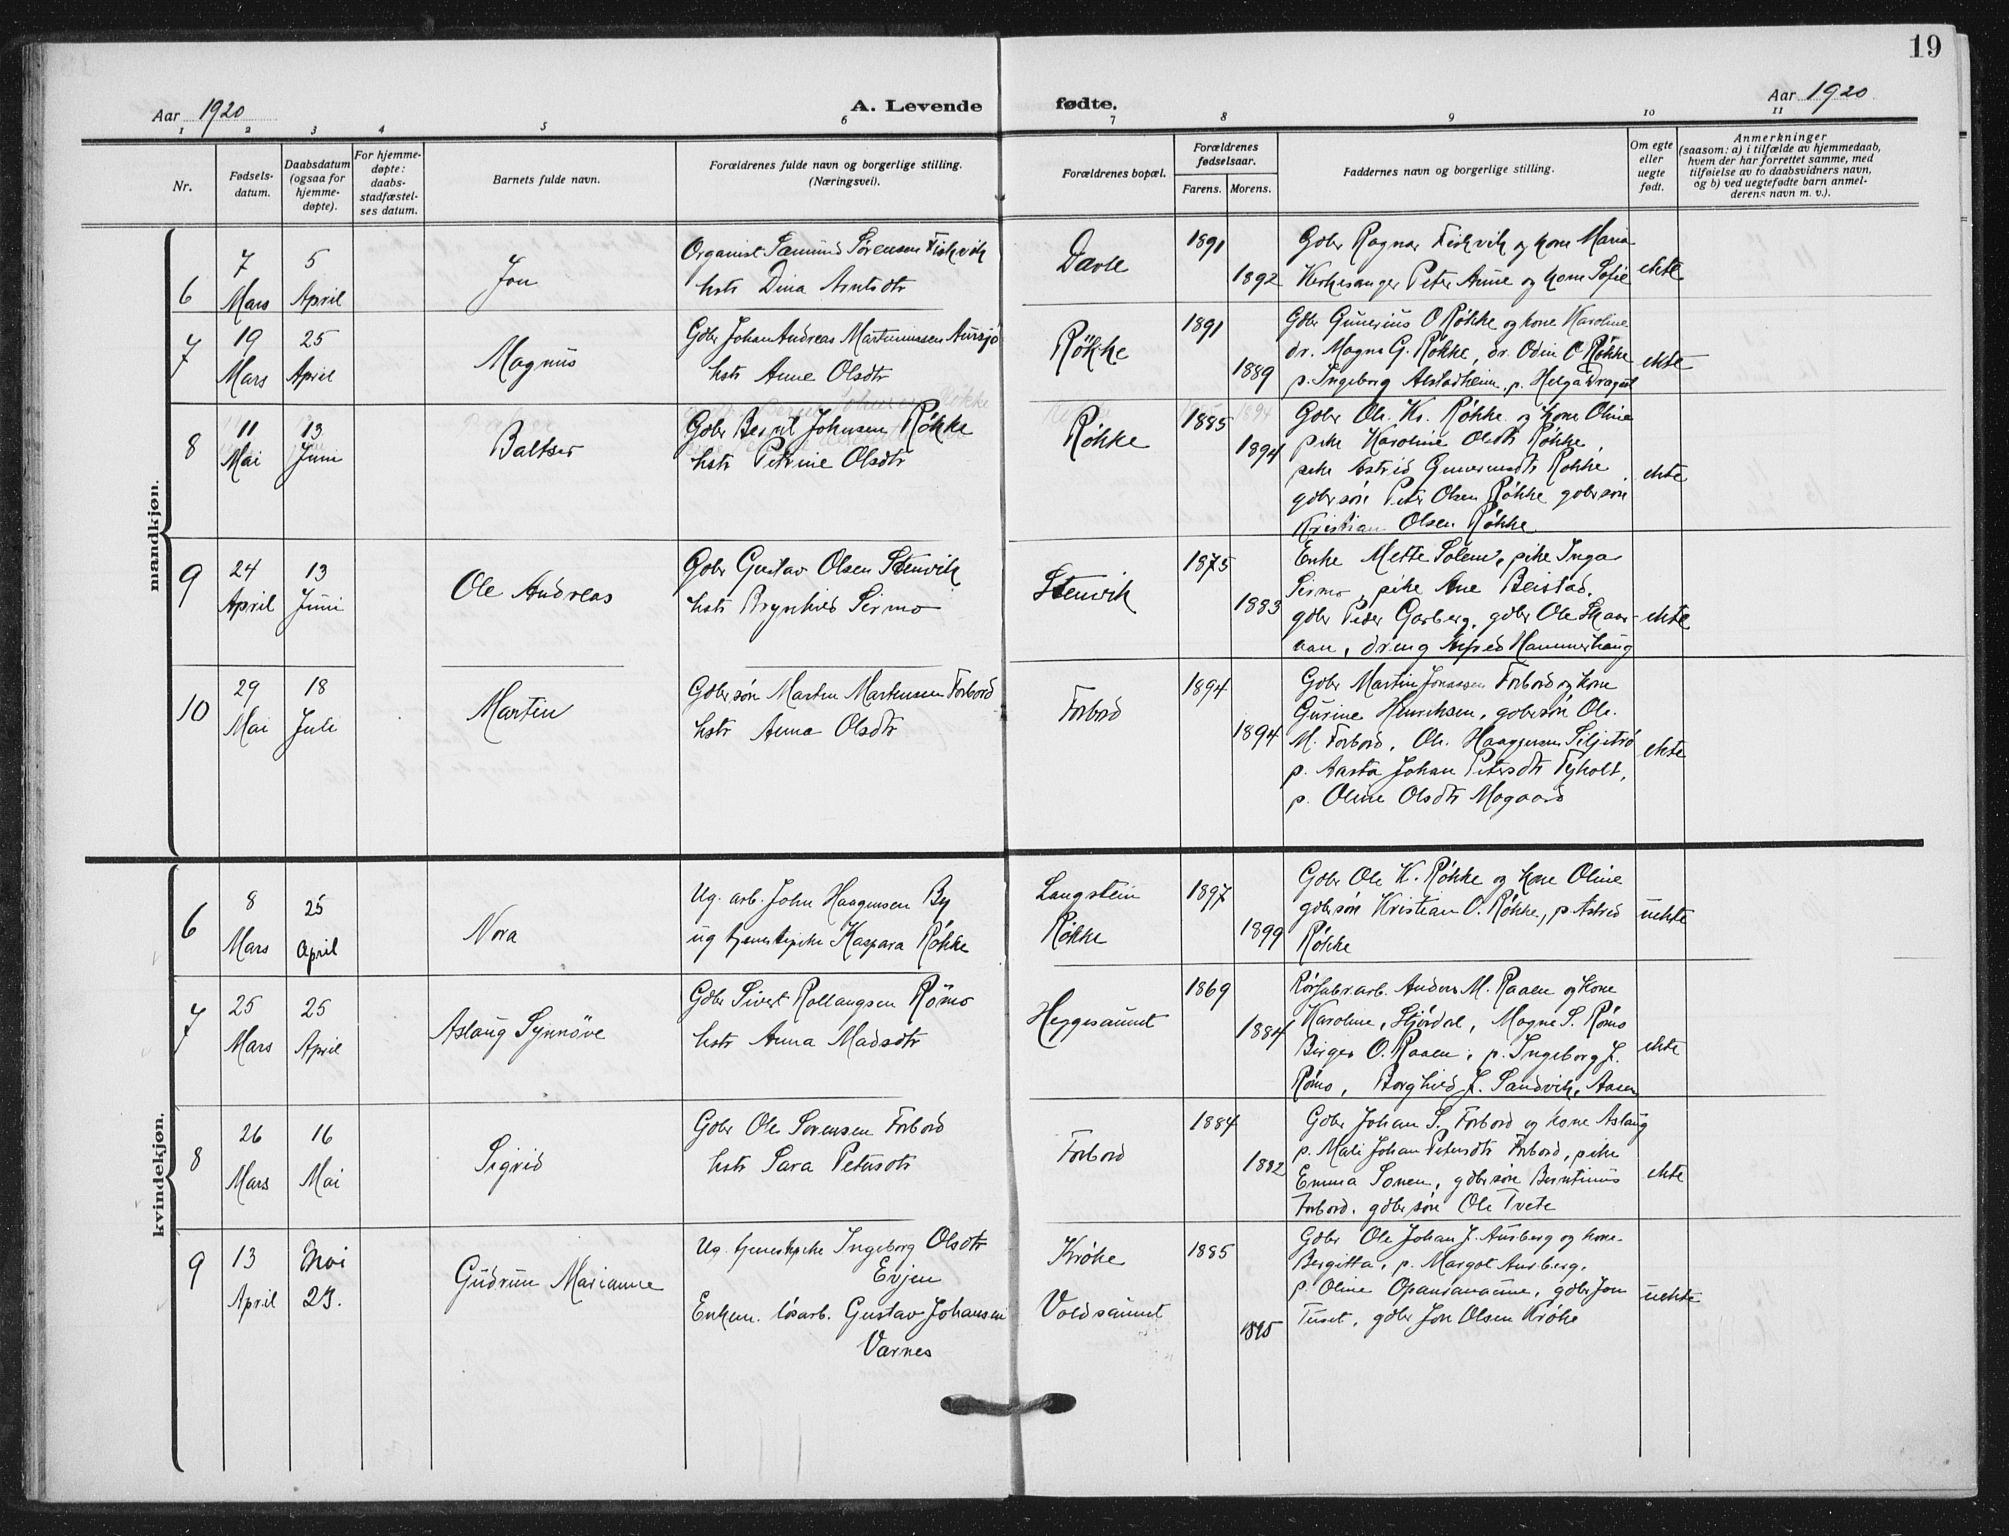 19
Aar 1920
A. Levende fødte.
Aar 1920
1 2 3 4 5 6 7 8 9 10 11
Nr.
Fødsels-
datum.
Daabsdatum
(ogsaa for
hjemme-
døpte).
For hjemme-
døpte:
daabs-
stadfæstel-
ses datum.
Barnets fulde navn.
Forældrenes fulde navn og borgerlige stilling.
(Næringsvei).
Forældrenes bopæl.
Forældrenes
fødselsaar.
Farens. Morens.
Faddernes navn og borgerlige stilling.
Om egte
eller
uegte
født.
Anmerkninger
(saasom: a) i tilfælde av hjemmedaab,
hvem der har forrettet samme, med
tilføielse av to daabsvidners navn,
og b) ved uegtefødte barn anmel-
derens navn m. v.).
mandkjøn.
6
7
Mars
5
April
Jon
Organist Sæmund Sørensen Fiskvik
hstr Dina Arntsdtr
Davle
1891
1892
Gdbr Ragnar Fiskvik og kone Maria
Kirkesanger Peter Aune og kone Sofie
ekte
7
19
Mars
25
April
Magnus
Gdbr Johan Andreas Martinussen Aursjø
hstr Anne Olsdtr
Røkke
1891
1889
Gdbr Gunerius O Røkke og kone Karoline
dr. Magne G. Røkke, dr. Odin O Røkke
p. Ingeborg Alstadheim, p. Helga Dragset
ekte
8
11
Mai
13
Juni
Baltser
Gdbr Bernt Johnsen Røkke
hstr Petrine Olsdtr
Røkke
1885
1894
Gdbr Ole Kr. Røkke og kone Oline
pike Karoline Olsdtr Røkke,
pike Astrid Guneriusdtr Røkke
gdbr søn Peter Olsen Røkke gdbr søn
Kristian Olsen Røkke
ekte
9
24
April
13
Juni
Ole Andreas
Gdbr Gustav Olsen Stenvik
hstr Brynhild Sirmo
Stenvik
1875
1883
Enke Mette Solem, pike Inga
Sirmo, pike Ane Beistad,
gdbr Peter Garberg, gdbr Ole Skaar-
aan, dreng Alfred Hammerhaug
ekte
10
29
Mai
18
Juli
Martin
Gdbr søn Martin Martinsen Forbord
hstr Anna Olsdtr
Forbord
1894
1894
Gdbr Martin Jonassen Forbord og kone
Gurine Henriksen, gdbr søn Ole
M. Forbord, Ole Haagensen
p. Aasta Johan Petersdtr Tyholt,
p. Oline Olsdtr Mogaard
ekte
kvindekjøn.
6
8
Mars
25
April
Nora
Ug. arb. John Haagensen By
ug tjenestepike Kaspara Røkke
Langstein
Røkke
1897
1899
Gdbr Ole K. Røkke og kone Oline
gdbr søn Kristian O. Røkke, p. Astrid
Røkke
uekte
7
25
Mars
25
April
Aslaug Synnöve
Gdbr Sivert Rollaugsen Römo
hstr Anna Madsdtr
Heggesaunet
1869
1884
Rörfabr.arb. Anders M. Raaen og kone
Karoline, Stjørdal, Magne S. Römo
Birger O. Raaen, p. Ingeborg J.
Römo, Borghild J. Sandvik, Aasen
ekte
8
26
Mars
16
Mai
Sigrid
Gdbr Ole Sorensen Forbord
hstr Sara Petersdtr
Forbord
1884
1882
Gdbr Johan S. Forbord og kone Aslaug
p. Mali Johan Petersdtr Forbord, pike
Emma Sonen, gdbr søn Berntinus
Forbord, gdbr søn Ole Tvete
ekte
9
13
April
Mai
23.
Gudrun Marianne
Ug. tjenestepike Ingeborg Olsdtr
Evjen
Enkem. løsarb. Gustav Johansen
Varnes
Krøke
Voldsaunet
1885
1895
Gdbr Ole Johan J. Ausberg og kone
Bergitta, p. Margot Ausberg,
p. Oline gdbr Jon
Tuset, gdbr Jon Olsen Krøke
uekte